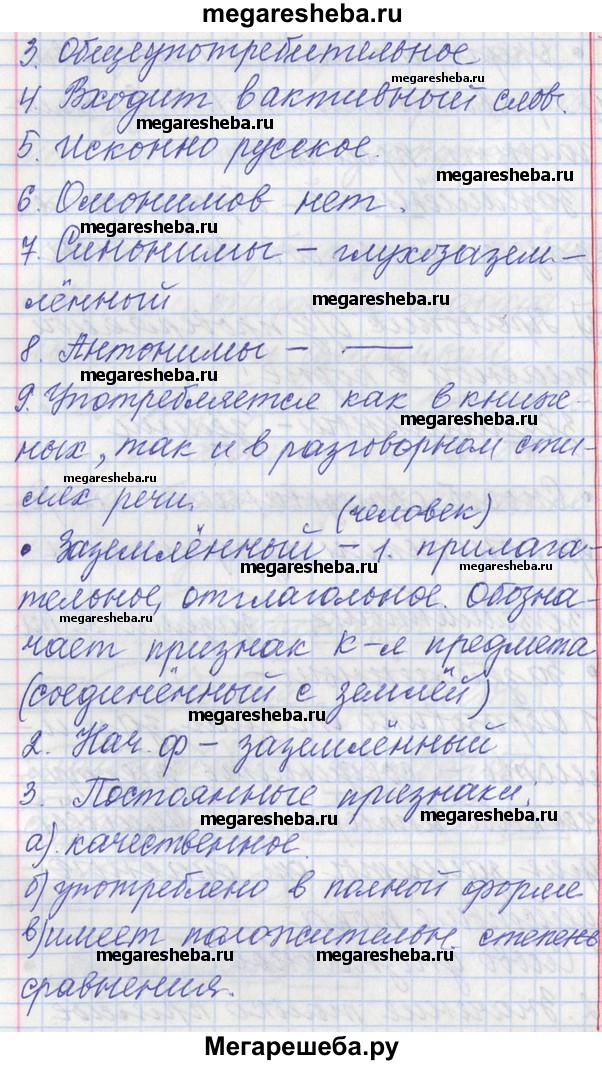 megaresheba.ru
3. Общеупотребительное
megaresheba.ru
4. Входит в активный слов.
megaresheba.ru
5. Исконно русское.
megaresheba.ru
6. Омонимов нет.
7. Синонимы – глухозазем-
лённый
megaresheba.ru
8. Антонимы – —
megaresheba.ru
9. Употребляется как в книж-
megaresheba.ru
ных, так и в разговорном сти-
megaresheba.ru
лях речи.
(человек)
• Заземлённый – 1. прилага-
megaresheba.ru
megaresheba.ru
тельное, отглагольное. Обозна-
megaresheba.ru
чает признак к-л предмета
(соединённый с землёй)
megaresheba.ru
2. Нач. ф – заземлённый
3. Постоянные признаки:
megaresheba.ru
megaresheba.ru
а) качественное.
б) употреблено в полной форме
в) имеет положительн. степень
megaresheba.ru
megaresheba.ru
сравнения.
megaresheba.ru
Мегарешеба.ру